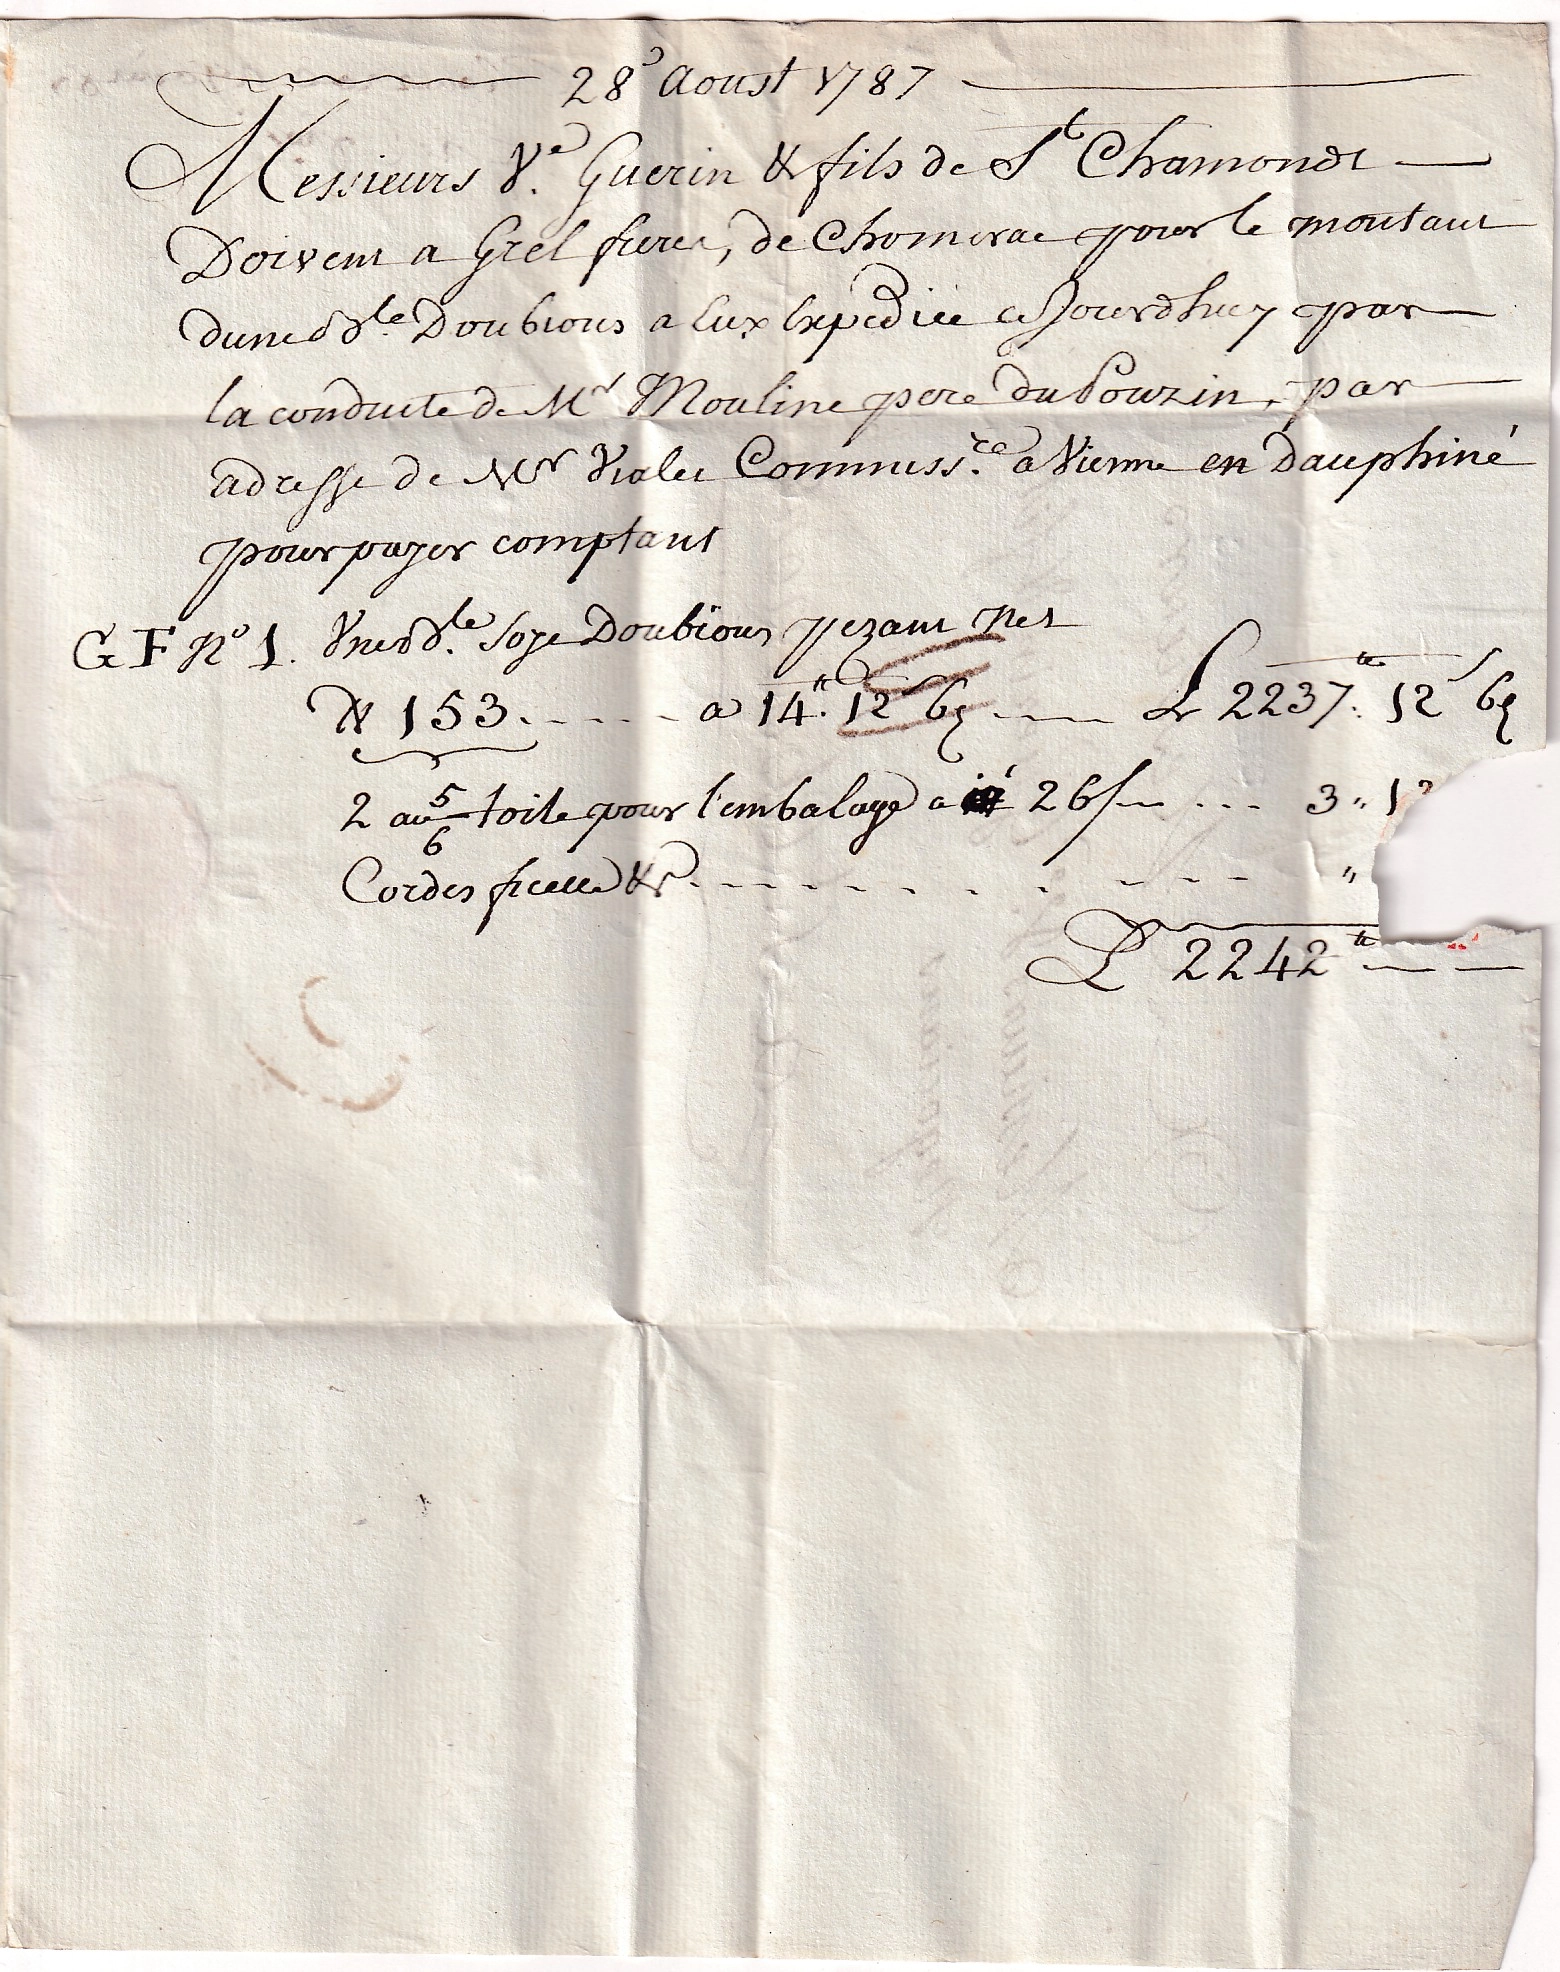 28e Aoust 1787
Messieurs Ve. Guerin & fils de St Chamondt
Doivent a Grel freres, de Chomerac pour le montant
dune Bâle. Doubions a Eux Expediée ce Jourdhuy par
la conduite de Mr Mouline pere du Pouzin, par
adresse de Mr Vialet Commissre. a Vienne en Dauphiné
pour payer comptant
G F No 1. Une Bâle. Soye Doubions pezant Net
℔ 153. a 14tt. 12s 6d L 2237tt. 12s 6d
2 au 5/6 toile pour l'embalage a 26s 3 " 1
Cordes ficelle &c "
L 2242tt